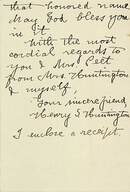 that honored name
May God bless you
in it.
With the most
cordial regards to
you & Mrs. Peet
from Mrs. Huntington
& myself,
Your sincere friend
Henry S Huntington
I enclose a receipt.